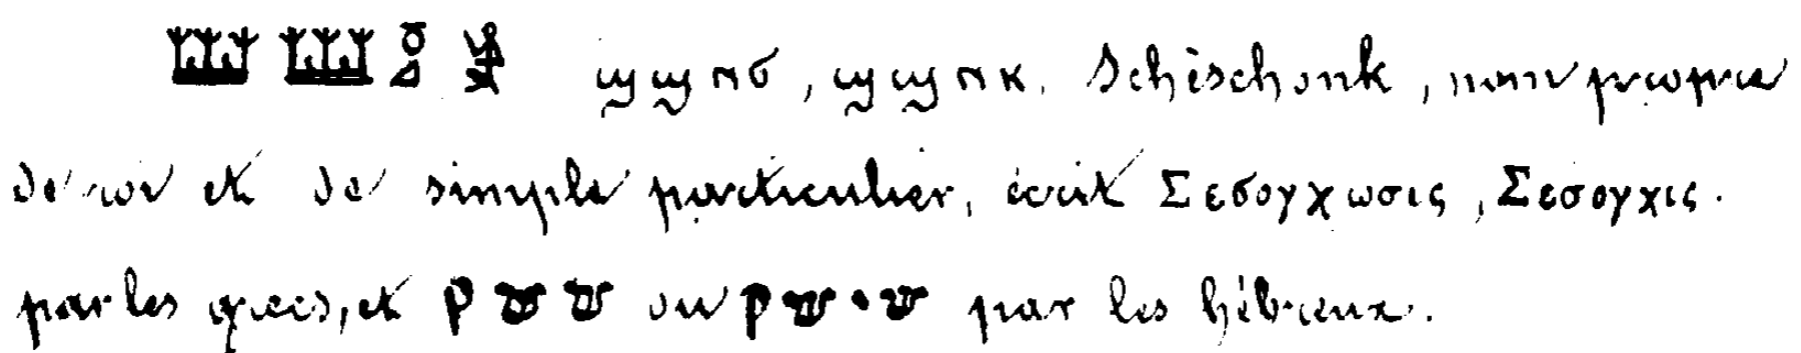 𓆷 𓆷 ϣϣⲛϭ, ϣϣⲛⲕ. Schèschonk, nom propre
de roi et de simple particulier, écrit Σεσογχωσις, Σεσογχις.
par les grecs, et ששק ou שישק par les hébreux.